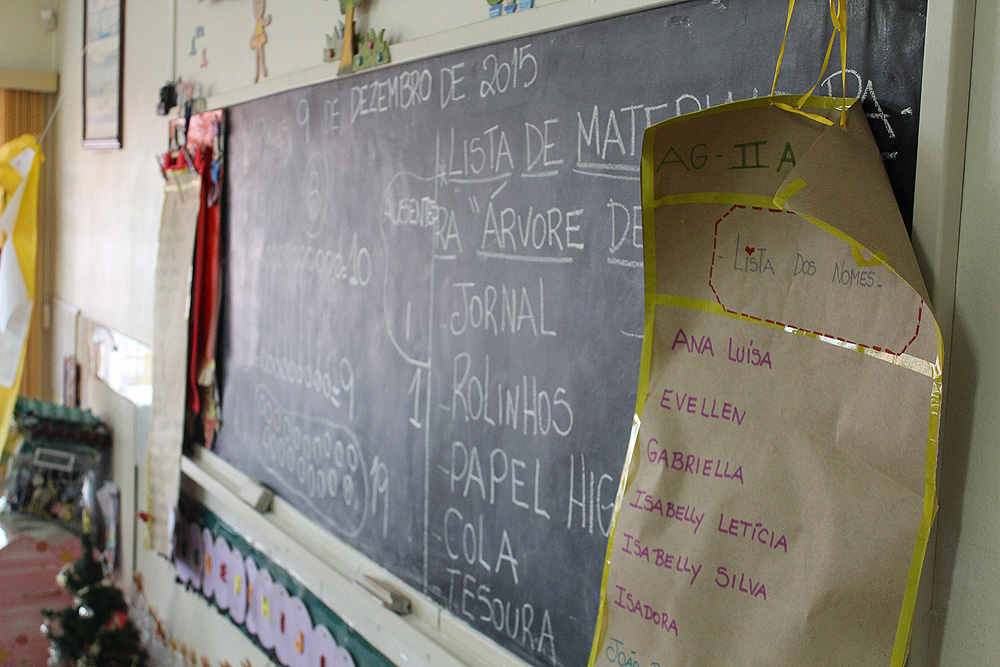 9 DE DEZEMBRO DE 2015
*LISTA DE
RA "ÁRVORE DE
- JORNAL
- ROLINHOS
- PAPEL HIG
- COLA
- TESOURA
=10
1
9
1
19
AG-II A
- LISTA DOS NOMES -
ANA LUÍSA
EVELLEN
GABRIELLA
ISABELLY LETÍCIA
ISABELLY SILVA
ISADORA
JOÃO